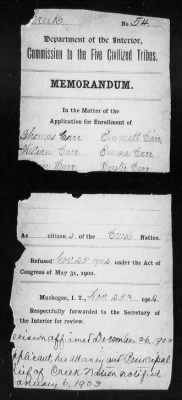 Creek No. 54
Department of the Interior,
Commission to the Five Civilized Tribes.
MEMORANDUM.
In the Matter of the
Application for Enrollment of
Thomas Carr Emmett Carr,
William Carr Emma Carr
Carr Carr
As citizens of the Creek Nation.
Refused Nov 25 1902 under the Act of
Congress of May 31, 1900.
Muskogee, I. T., Nov 25th 1902
Respectfully forwarded to the Secretary of
the Interior for review.
affirmed December 26, 190
applicant, his attorney and Principal
ief of Creek Nation notified
anuary 6, 1903